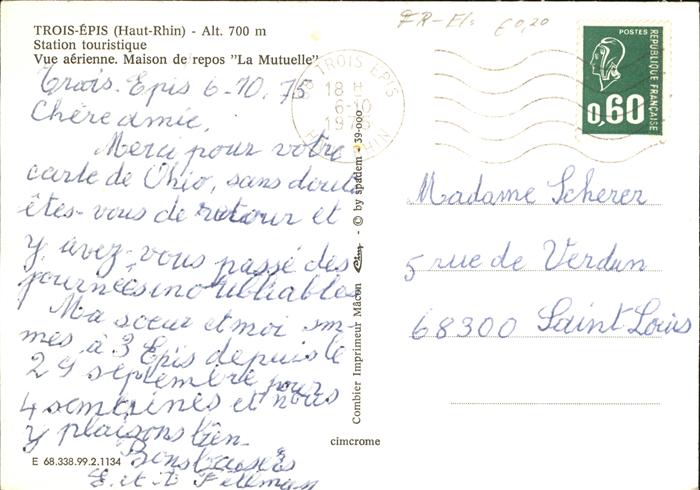 TROIS-ÉPIS (Haut-Rhin) - Alt. 700 m
Station touristique
Vue aérienne. Maison de repos "La Mutuelle"
Trois-Epis 6-10.75
Chère amie,
Merci pour votre
carte de Ohio, sans doute
êtes-vous de retour et
y avez-vous passé des
journées inoubliables
Ma soeur et moi som-
mes à 3 Epis depuis le
29 septembre pour
4 semaines et nous
y plaisons bien.
E. et
E 68.338.99.2.1134
cimcrome
Combier Imprimeur Mâcon Cim - © by spadem - 39-000
TROIS EPIS
18 H
6-10
1975
RHIN
FR-
€0,20
POSTES
RÉPUBLIQUE FRANÇAISE
0,60
Madame Scherer
5 rue de Verdun
68300 Saint Louis